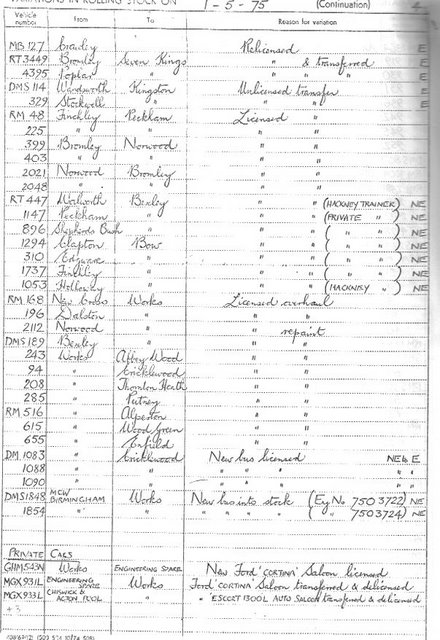 VARIATIONS IN ROLLING STOCK ON 1-5-75 (Continuation) 4
Vehicle number From To Reason for variation
MB 127 Bexley Relicensed E
RT 3449 Bromley Seven Kings " & transferred E
4395 Poplar " " " E
DMS 114 Wandsworth Kingston Unlicensed transfer E
329 Stockwell " " " E
RM 48 Finchley Peckham Licensed "
225 " " " "
399 Bromley Norwood " "
403 " " " "
2021 Norwood Bromley " "
2048 " " " "
RT 447 Walworth Bexley " " (HACKNEY TRAINER) NE
1147 Peckham " " " (PRIVATE " ) NE
896 Shepherds Bush " " " ( " " ) NE
1294 Clapton Bow " " ( " " ) NE
310 Edgware " " " ( " " ) NE
1737 Finchley " " " ( " " ) NE
1053 Holloway " " " (HACKNEY " ) NE
RM 168 New Cross Works Licensed overhaul
196 Dalston " " "
2112 Norwood " " repaint
DMS 189 Bexley " " "
243 Works Abbey Wood " "
94 " Cricklewood " "
208 " Thornton Heath " "
285 " Putney " "
RM 516 " Alperton " "
615 " Wood Green " "
655 " Enfield " "
DM 1083 " Cricklewood New bus licensed NE & E
1088 " " " " " " "
1090 " " " " " " "
DMS 1848 MCW BIRMINGHAM Works New bus into stock (Eng No 7503722) NE
1854 " " " " " " ( " 7503724) NE
PRIVATE CARS
GHM 543N Works ENGINEERING SPARE New Ford 'CORTINA' Saloon licensed
MGX 931L ENGINEERING SPARE Works Ford 'CORTINA' Saloon transferred & delicensed
MGX 933L CHISWICK & ACTON POOL " " 'ESCORT 1300L AUTO SALOON transferred & delicensed
+3